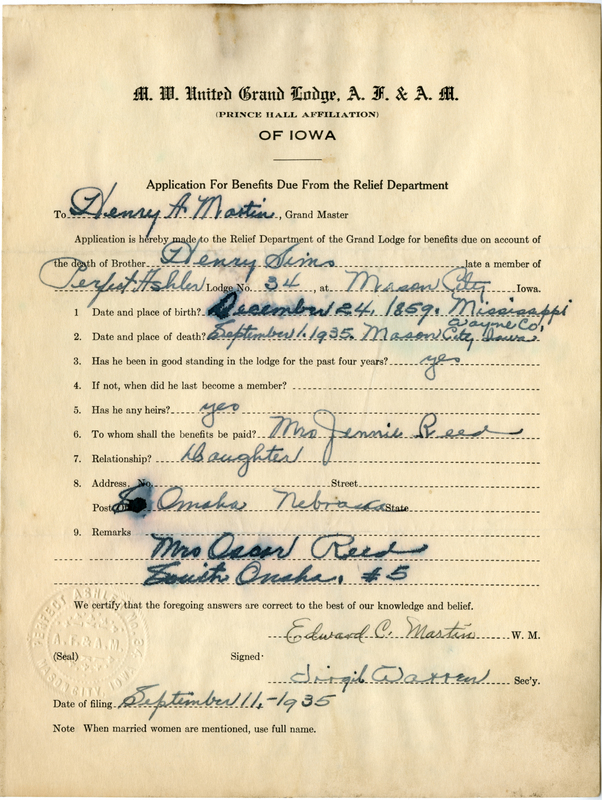 M. W. United Grand Lodge, A. F. & A. M.
(PRINCE HALL AFFILIATION)
OF IOWA
Application For Benefits Due From the Relief Department
To Henry A. Martin, Grand Master
Application is hereby made to the Relief Department of the Grand Lodge for benefits due on account of
the death of Brother Henry Sims late a member of
Perfect Ashler Lodge No. 34, at Mason City Iowa.
1 Date and place of birth? December 24, 1859. Mississippi
Wayne Co,
2. Date and place of death? September 1. 1935. Mason City, Iowa
3. Has he been in good standing in the lodge for the past four years? yes
4. If not, when did he last become a member?
5. Has he any heirs? yes
6. To whom shall the benefits be paid? Mrs Jennie Reed
7. Relationship? Daughter
8. Address, No. Street
Post Omaha Nebraska State
9. Remarks
Mrs Oscar Reed
South Omaha. #5
We certify that the foregoing answers are correct to the best of our knowledge and belief.
Edward C. Martin W. M.
(Seal) Signed
Virgil Warren Sec'y.
Date of filing September 11,-1935
Note When married women are mentioned, use full name.
PERFECT ASHLER
A. F. & A. M.
MASON CITY